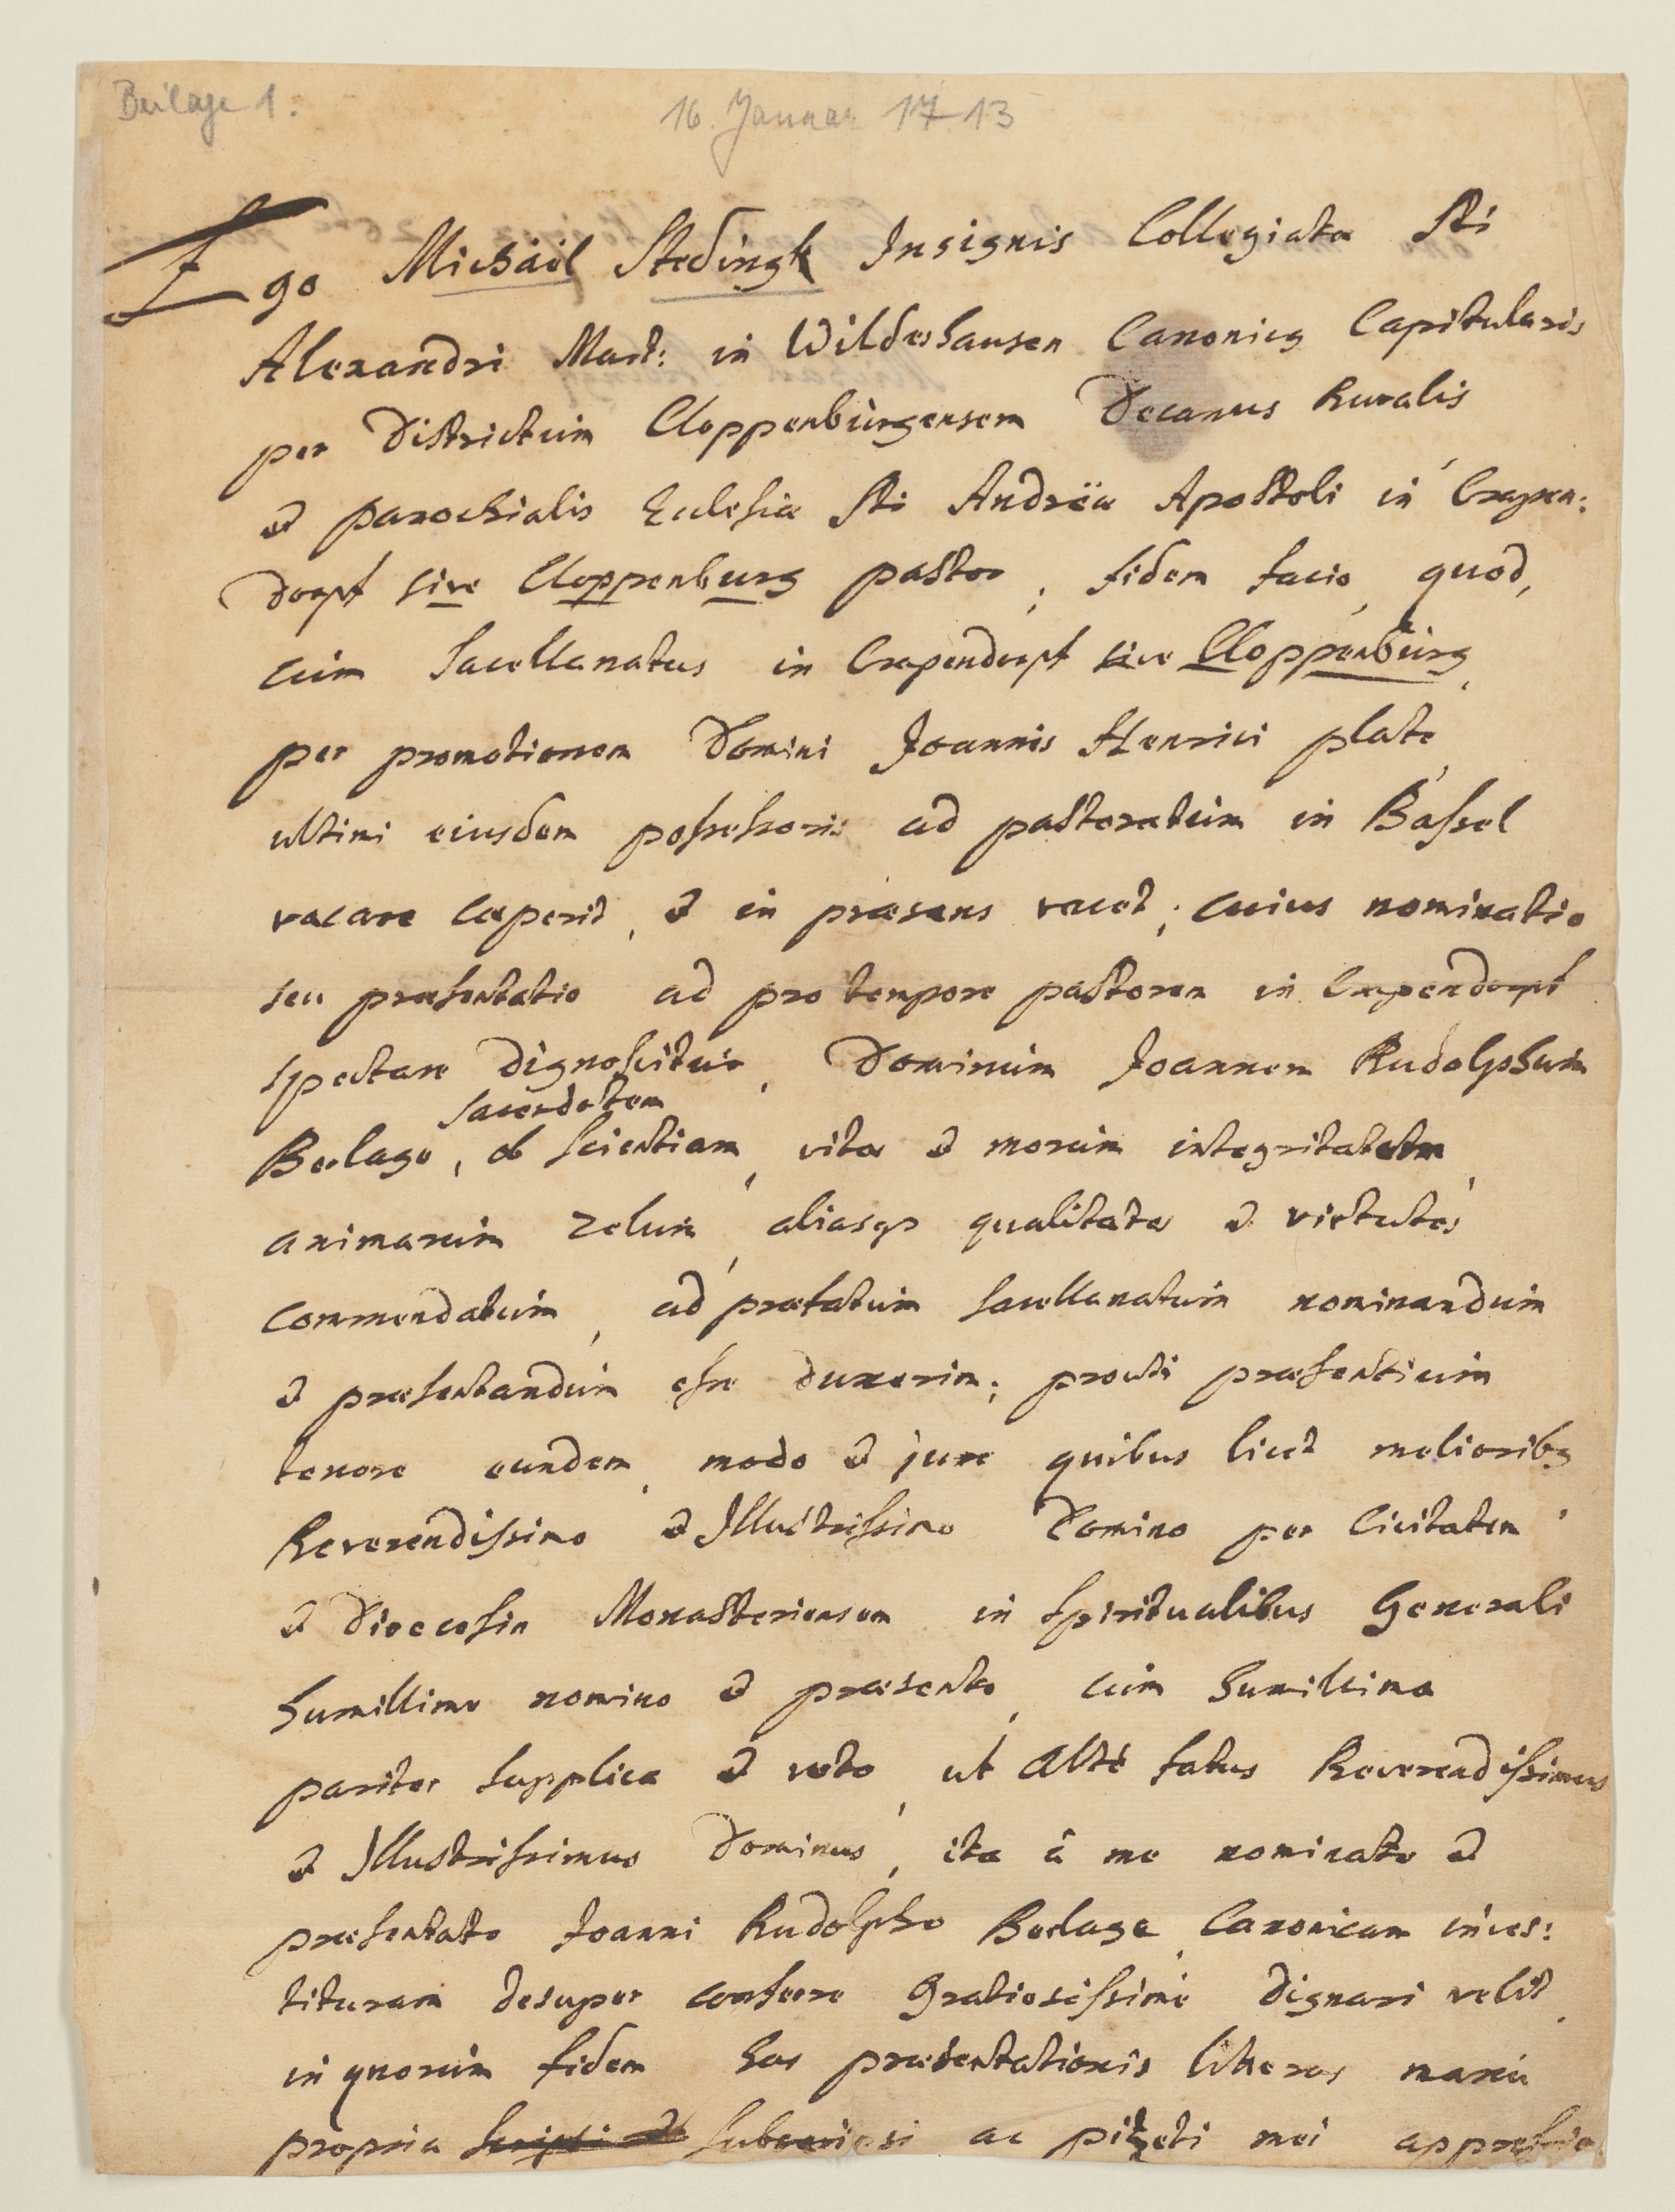 Beilage 1.
16. Januar 1713
Ego Michäel Stedingk Insignis Collegiatæ Sti
Alexandri Mart: in Wildeshausen Canonicus Capitularis
per Districtum Cloppenburgensem Decanus Ruralis
et parochialis Ecclesiæ Sti Andreæ Apostoli in Crapen:
dorpf sive Cloppenburg pastor, fidem facio, quod,
cum Sacellanatus in Crapendorpf sive Cloppenburg,
per promotionem Domini Joannis Henrici plate,
ultimi eiusdem possessoris ad pastoratum in Bassel
vacare cæperit, et in præsens vacet; cuius nominatio
seu præsentatio ad pro tempore pastorem in Crapendorpf
spectare dignoscitur, Dominum Joannem Rudolphum
sacerdotem
Berlage, ob scientiam, vitæ et morum integritatem,
animarum zelum, aliasqs qualitates et virtutes
commendatum, ad præfatum sacellanatum nominandum
et præsentandum esse duxerim; prouti præsentium
tenore eundem, modo et jure quibus licet melioribus
Reverendissimo et Illustrissimo Domino per Civitatem
et Dioecesin Monasteriensem in Spiritualibus Generali
humillime nomino et præsento, cum humillima
pariter supplica et voto, ut altè fatus Reverendissimus
et Illustrissimus Dominus, ita à me nominato et
præsentato Joanni Rudolpho Berlage, Canonicam inves:
tituram desuper conferre Gratiosissimè dignari velit,
in quorum fidem has præsentationis litteras manu
propria scripsi et subscripsi ac mei appressio